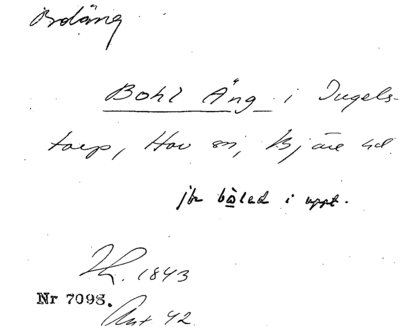 Boläng
Bohl Äng i Ingels-
torp, Hov sn, Bjäre hd.
jbr båled i uppt.
1843
Nr 7098.
Akt 42